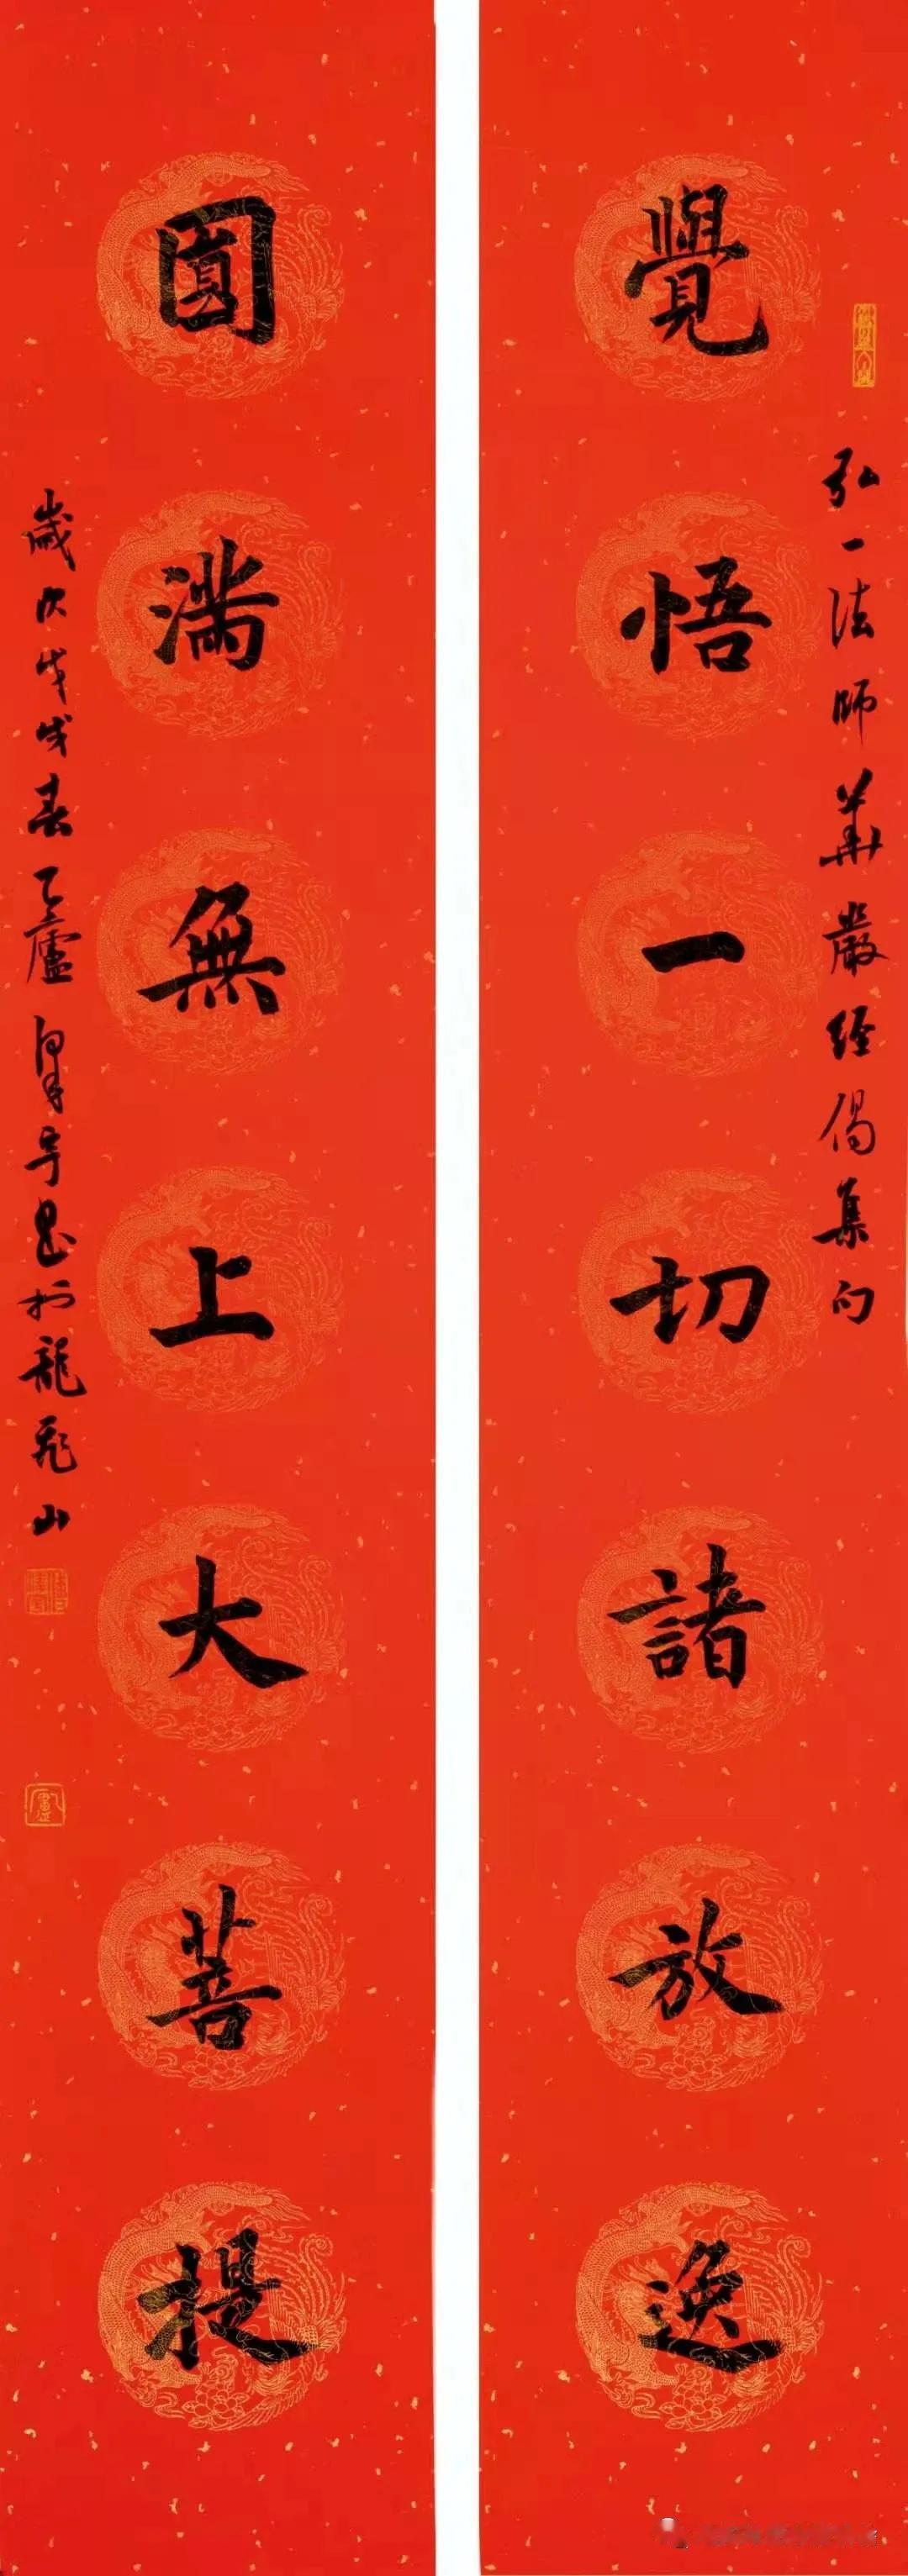 弘一法師華嚴經偈集句
覺悟一切諸放逸
圓滿無上大菩提
歲次戊戌春乙廬
於龍飛山